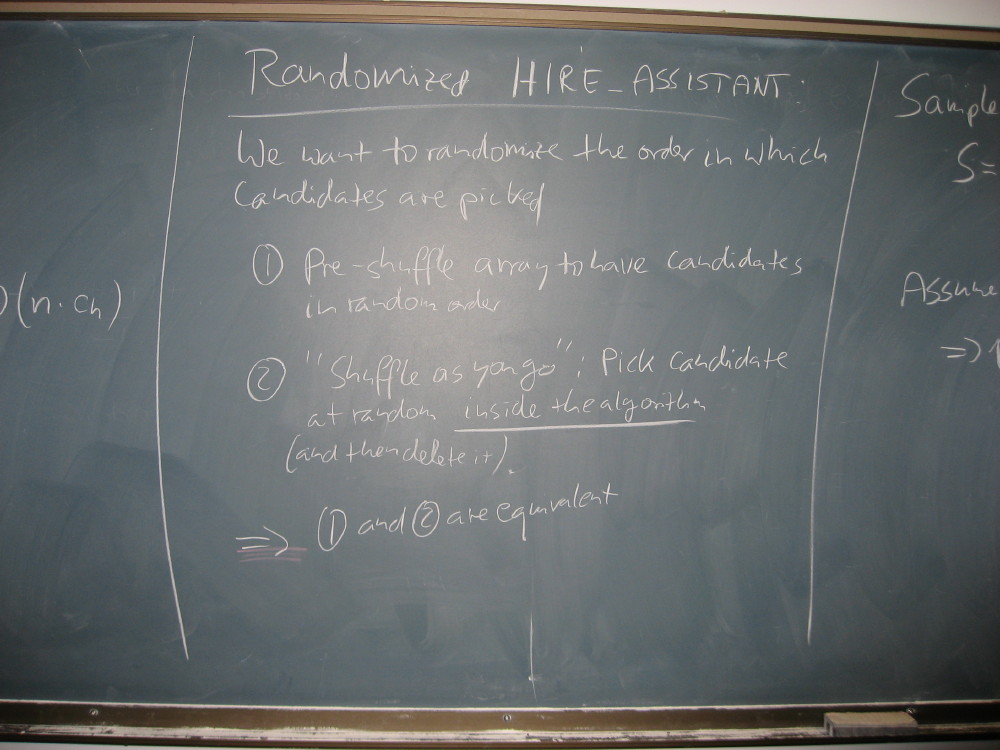 O(n·Ch)
Randomized HIRE_ASSISTANT:
We want to randomize the order in which
Candidates are picked
① Pre-shuffle array to have candidates
in random order
② "Shuffle as you go": Pick candidate
at random inside the algorithm
(and then delete it).
⇒ ① and ② are equivalent
Sample
S=
Assume
⇒